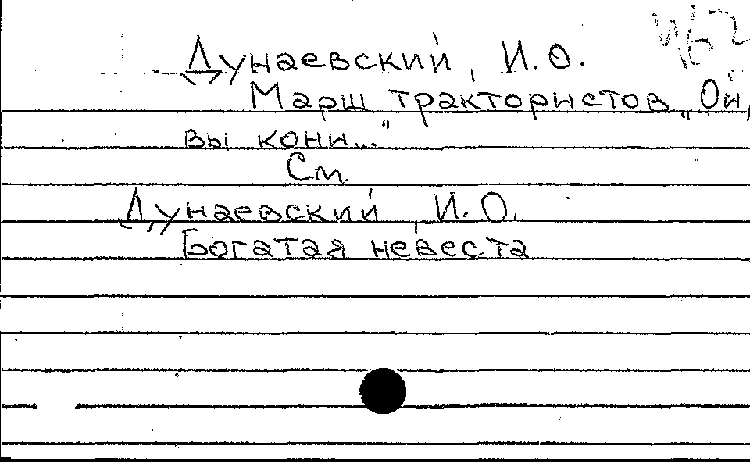 Дунаевский, И.О.
Марш трактористов „Ой,
вы кони..."
См.
Дунаевский, И.О.
Богатая невеста